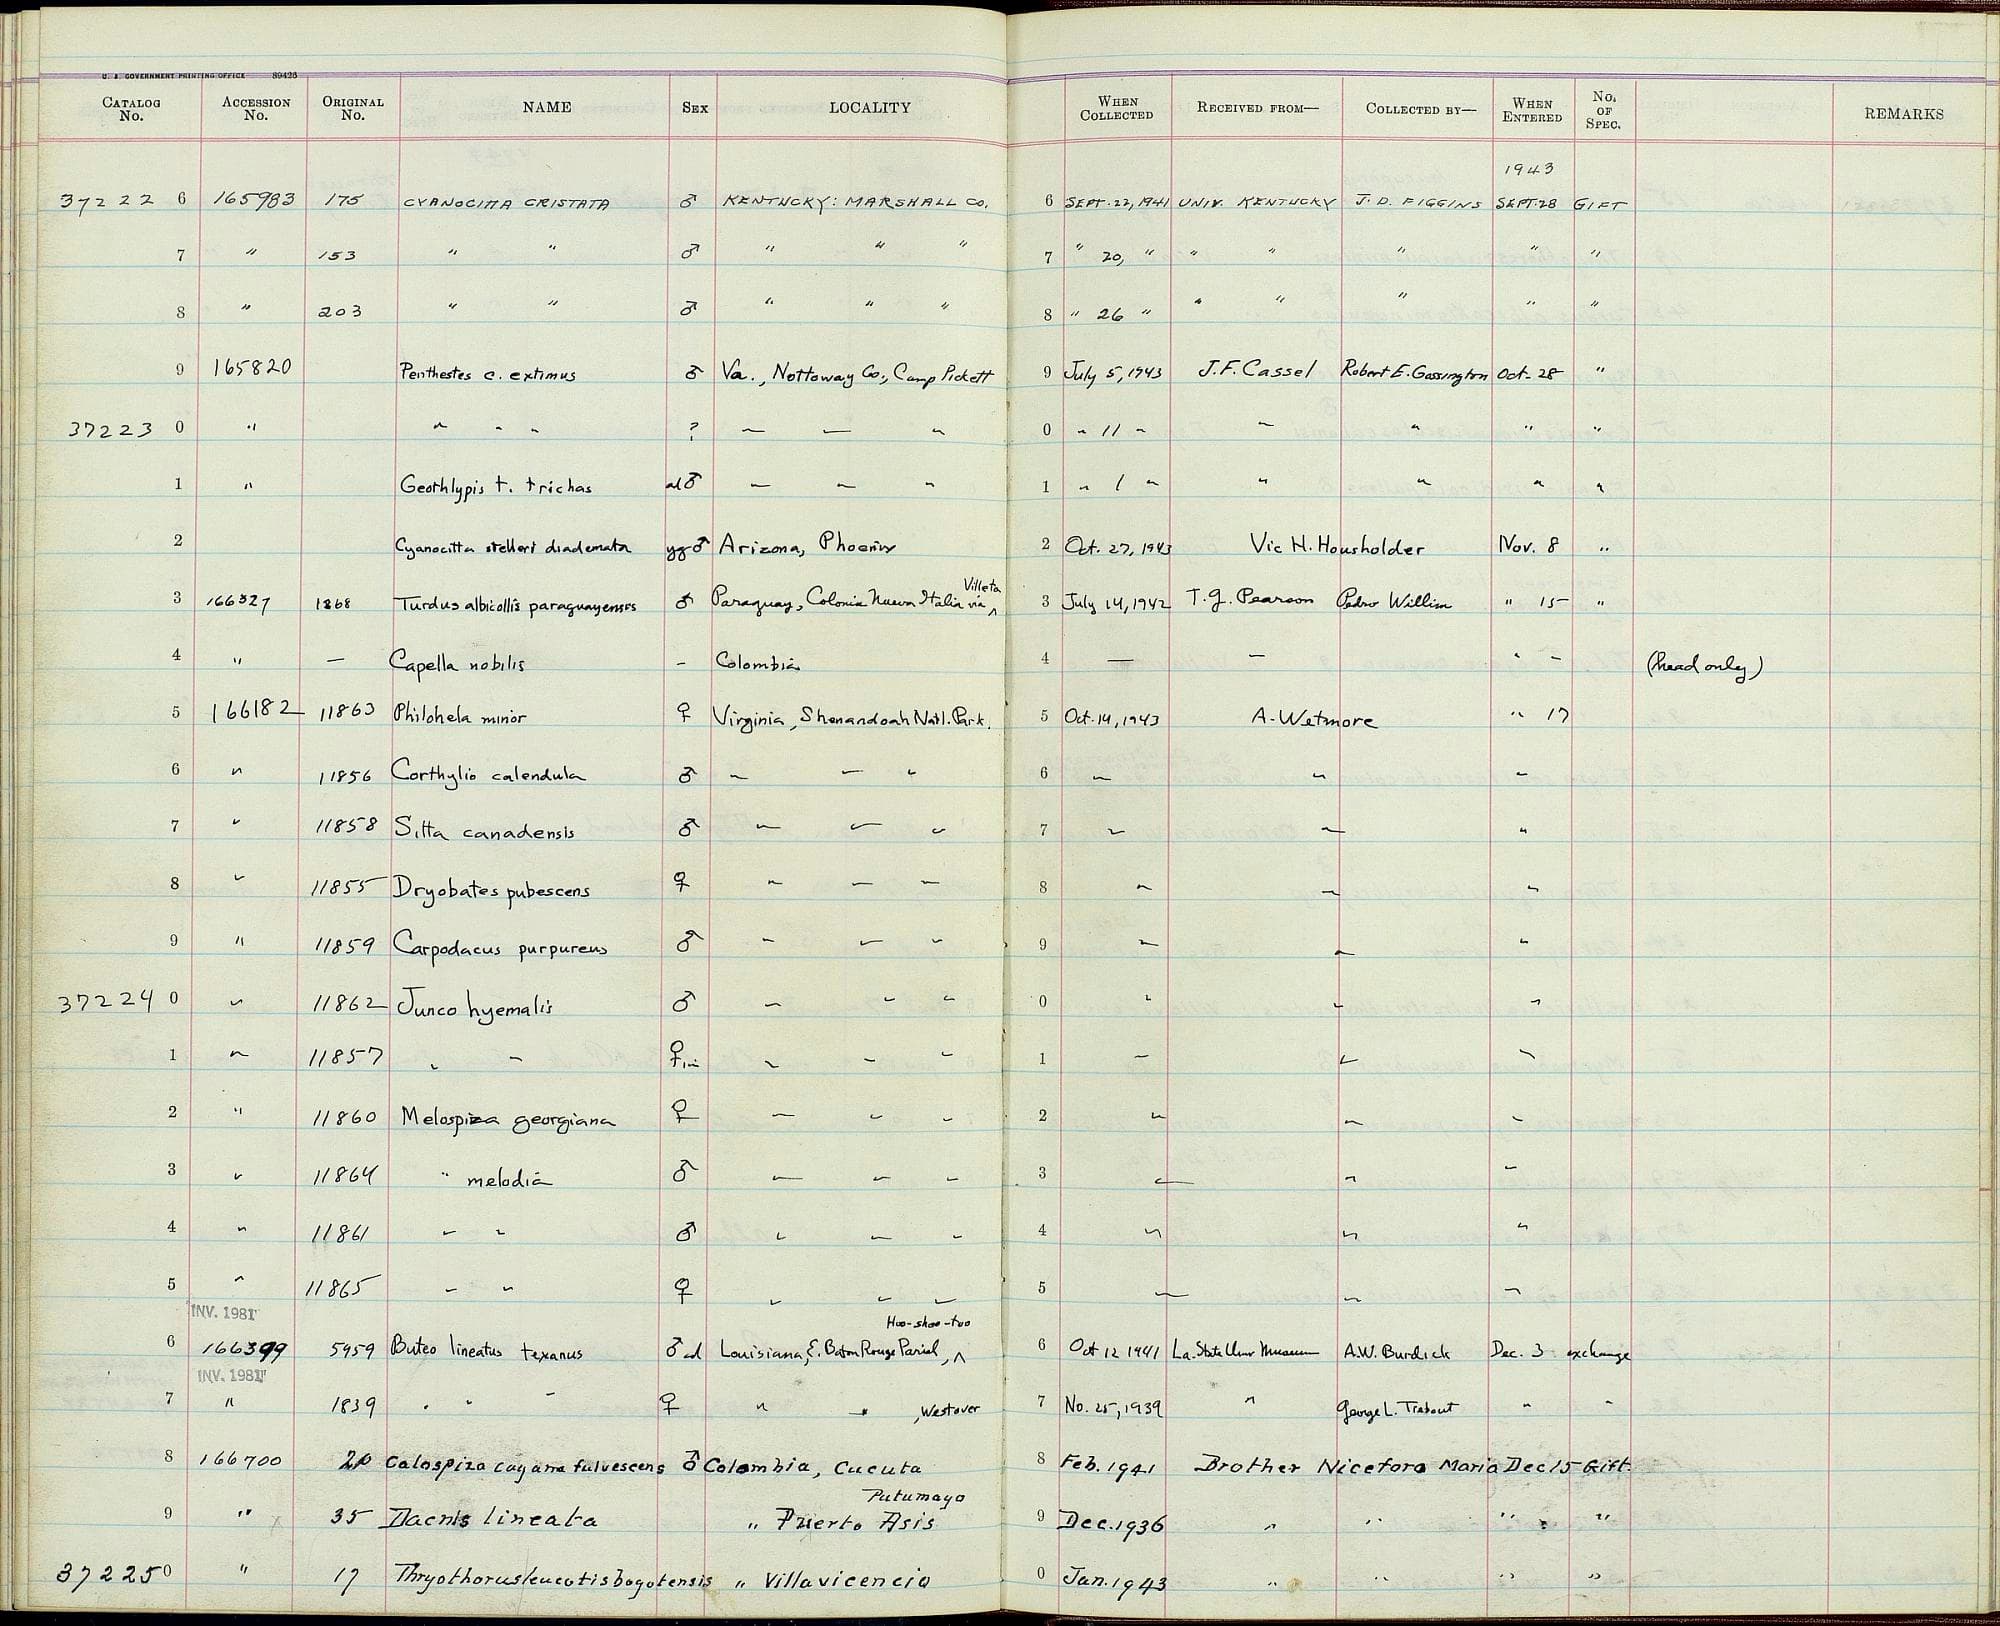 U. S. GOVERNMENT PRINTING OFFICE 89426
CATALOG No. ACCESSION No. ORIGINAL No. NAME SEX LOCALITY WHEN COLLECTED RECEIVED FROM— COLLECTED BY— WHEN ENTERED No. OF SPEC. REMARKS
1943
37222 6 165983 175 CYANOCITTA CRISTATA ♂ KENTUCKY: MARSHALL CO. 6 SEPT. 22, 1941 UNIV. KENTUCKY J. D. FIGGINS SEPT. 28 GIFT
7 " 153 " " ♂ " " " 7 " 20, " " " " " "
8 " 203 " " ♂ " " " 8 " 26 " " " " " "
9 165820 Penthestes c. extimus ♂ Va., Nottoway Co., Camp Pickett 9 July 5, 1943 J.F. Cassel Robert E. Gossington Oct. 28 "
37223 0 " " " " ? " " " 0 " 11 " " " " "
1 " Geothlypis t. trichas ad ♂ " " " 1 " 1 " " " " "
2 Cyanocitta stelleri diademata yg ♂ Arizona, Phoenix 2 Oct. 27, 1943 Vic H. Housholder Nov. 8 "
Villeta
3 166327 1268 Turdus albicollis paraguayensis ♂ Paraguay, Colonia Nueva Italia via ^ 3 July 14, 1942 T. G. Pearson Pedro Willim " 15 "
4 " — Capella nobilis - Colombia 4 — — " — (head only)
5 166182 11863 Philohela minor ♀ Virginia, Shenandoah Natl. Park. 5 Oct. 14, 1943 A. Wetmore " 17
6 " 11856 Corthylio calendula ♂ " " " 6 " " "
7 " 11858 Sitta canadensis ♂ " " " 7 " " "
8 " 11855 Dryobates pubescens ♀ " " " 8 " " "
9 " 11859 Carpodacus purpureus ♂ " " " 9 " " "
37224 0 " 11862 Junco hyemalis ♂ " " " 0 " " "
1 " 11857 " " ♀ im " " " 1 " " "
2 " 11860 Melospiza georgiana ♀ " " " 2 " " "
3 " 11864 " melodia ♂ " " " 3 " " "
4 " 11861 " " ♂ " " " 4 " " "
5 " 11865 " " ♀ " " " 5 " " "
INV. 1981 Hoo-shoo-too
6 166399 5959 Buteo lineatus texanus ♂ ad Louisiana, E. Baton Rouge Parish, ^ 6 Oct 12 1941 La. State Univ Museum A.W. Burdick Dec. 3 exchange
INV. 1981
7 " 1839 " " ♀ " " , Westover 7 No. 25, 1939 " George L. " "
8 166700 20 Calospiza cayana fulvescens ♂ Colombia, Cucuta 8 Feb. 1941 Brother Niceforo Maria Dec 15 Gift.
Putumayo
9 " 35 Dacnis lineata " Puerto Asis 9 Dec. 1936 " " " " "
37225 0 " 17 Thryothorus leucotis bogotensis " Villavicencio 0 Jan. 1943 " " " "